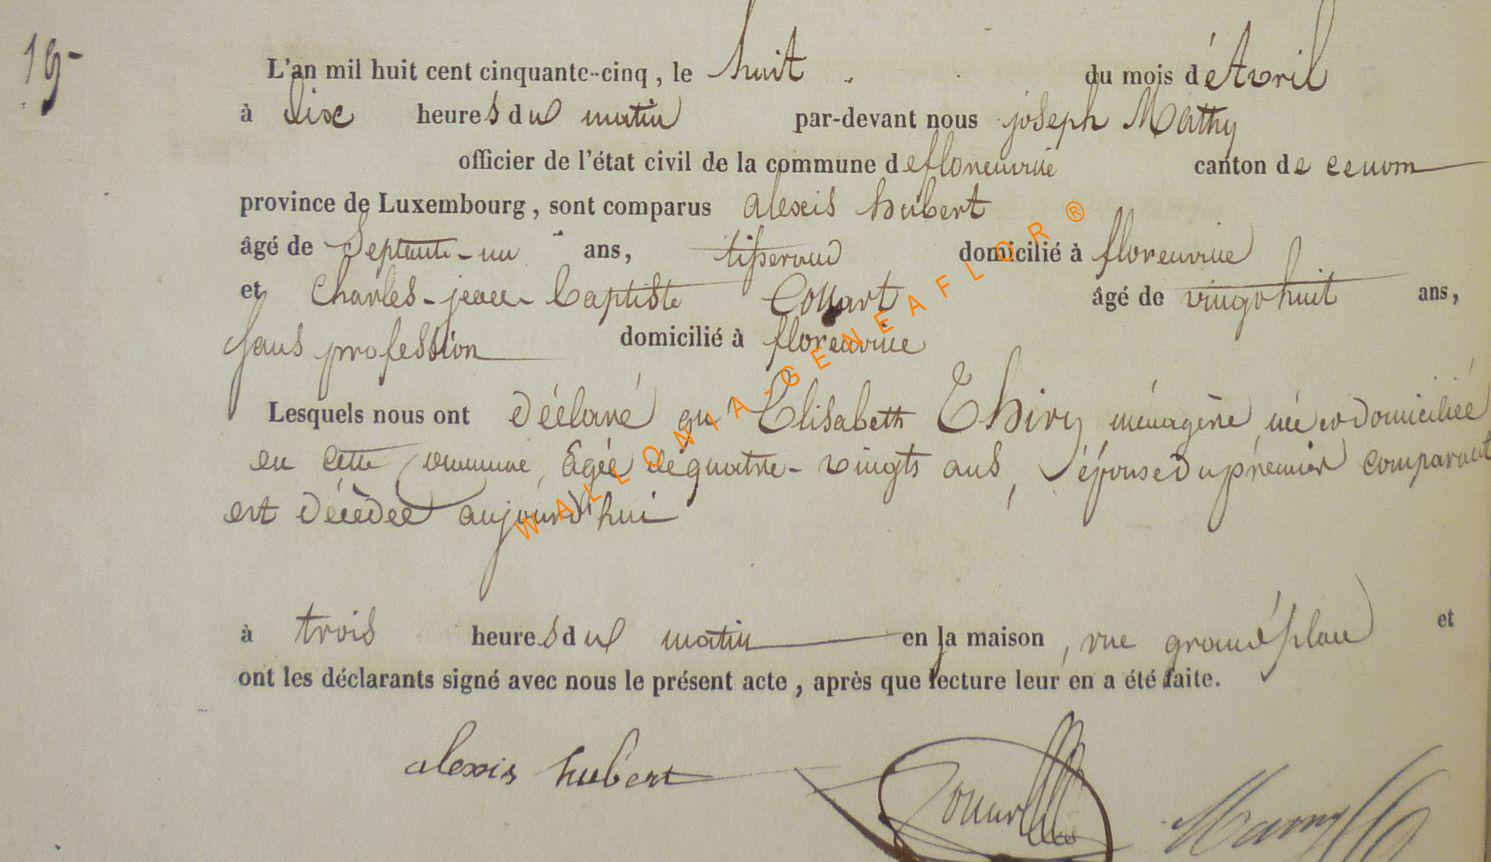 19-
L'an mil huit cent cinquante-cinq, le huit du mois d'Avril
à dix heures du matin par-devant nous joseph Mathy
officier de l'état civil de la commune de florenville canton de
province de Luxembourg, sont comparus alexis hubert
âgé de Septante-un ans, tisserand domicilié à florenville
et Charles-jean Baptiste Collart âgé de vingt huit ans,
sans profession domicilié à florenville
Lesquels nous ont déclaré qu'Elisabeth Thiry ménagère, née et domiciliée
en cette commune, âgée de quatre-vingts ans, épouse du premier comparant
est décédée aujourd'hui
à trois heures du matin en la maison, rue grand'place et
ont les déclarants signé avec nous le présent acte, après que lecture leur en a été faite.
alexis hubert
WALLONIA-GENEAFLOR®